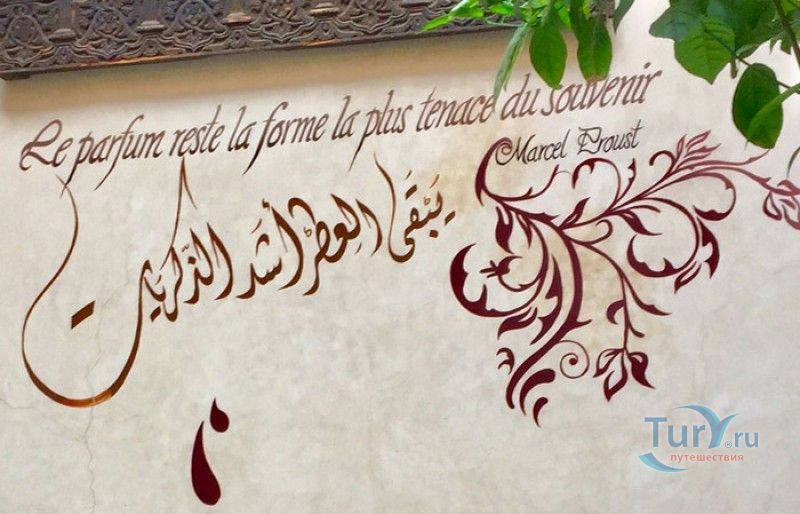 Le parfum reste la forme la plus tenace du souvenir
Marcel Proust
يَبْقى العِطْرُ أشَد الذّكريات
Tury.ru
путешествия